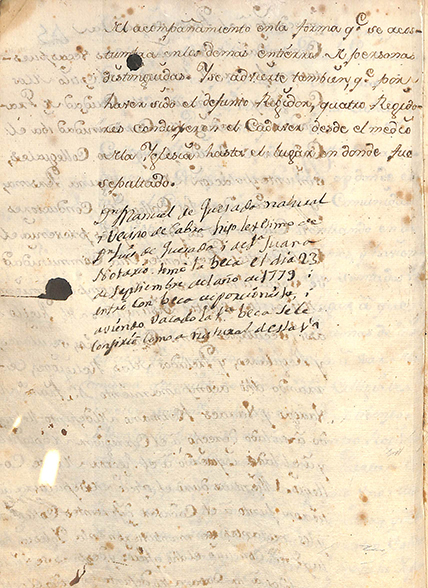 el acompañamiento en la forma qe. se acos-
tumbra en los demas entierros de personas
distinguidas. Y se advierte tambien, qe. por
haver sido el defunto Regidor, quatro Regido-
res condugeron el Cadaver desde el medio
de la Yglesia hasta el lugar en donde fue
sepultado.
Dn. Manuel de Quesada natural
i Vecino de Cabra hijo lexitimo de
Dn. Juan de Quesada i de Da. Juana
Notario tomò la beca el dia 23
de septiembre del año de 1779, i
entrò con beca de porcionista, i
aviendo vacado la beca se le
confiriò como a natural de esta Va.